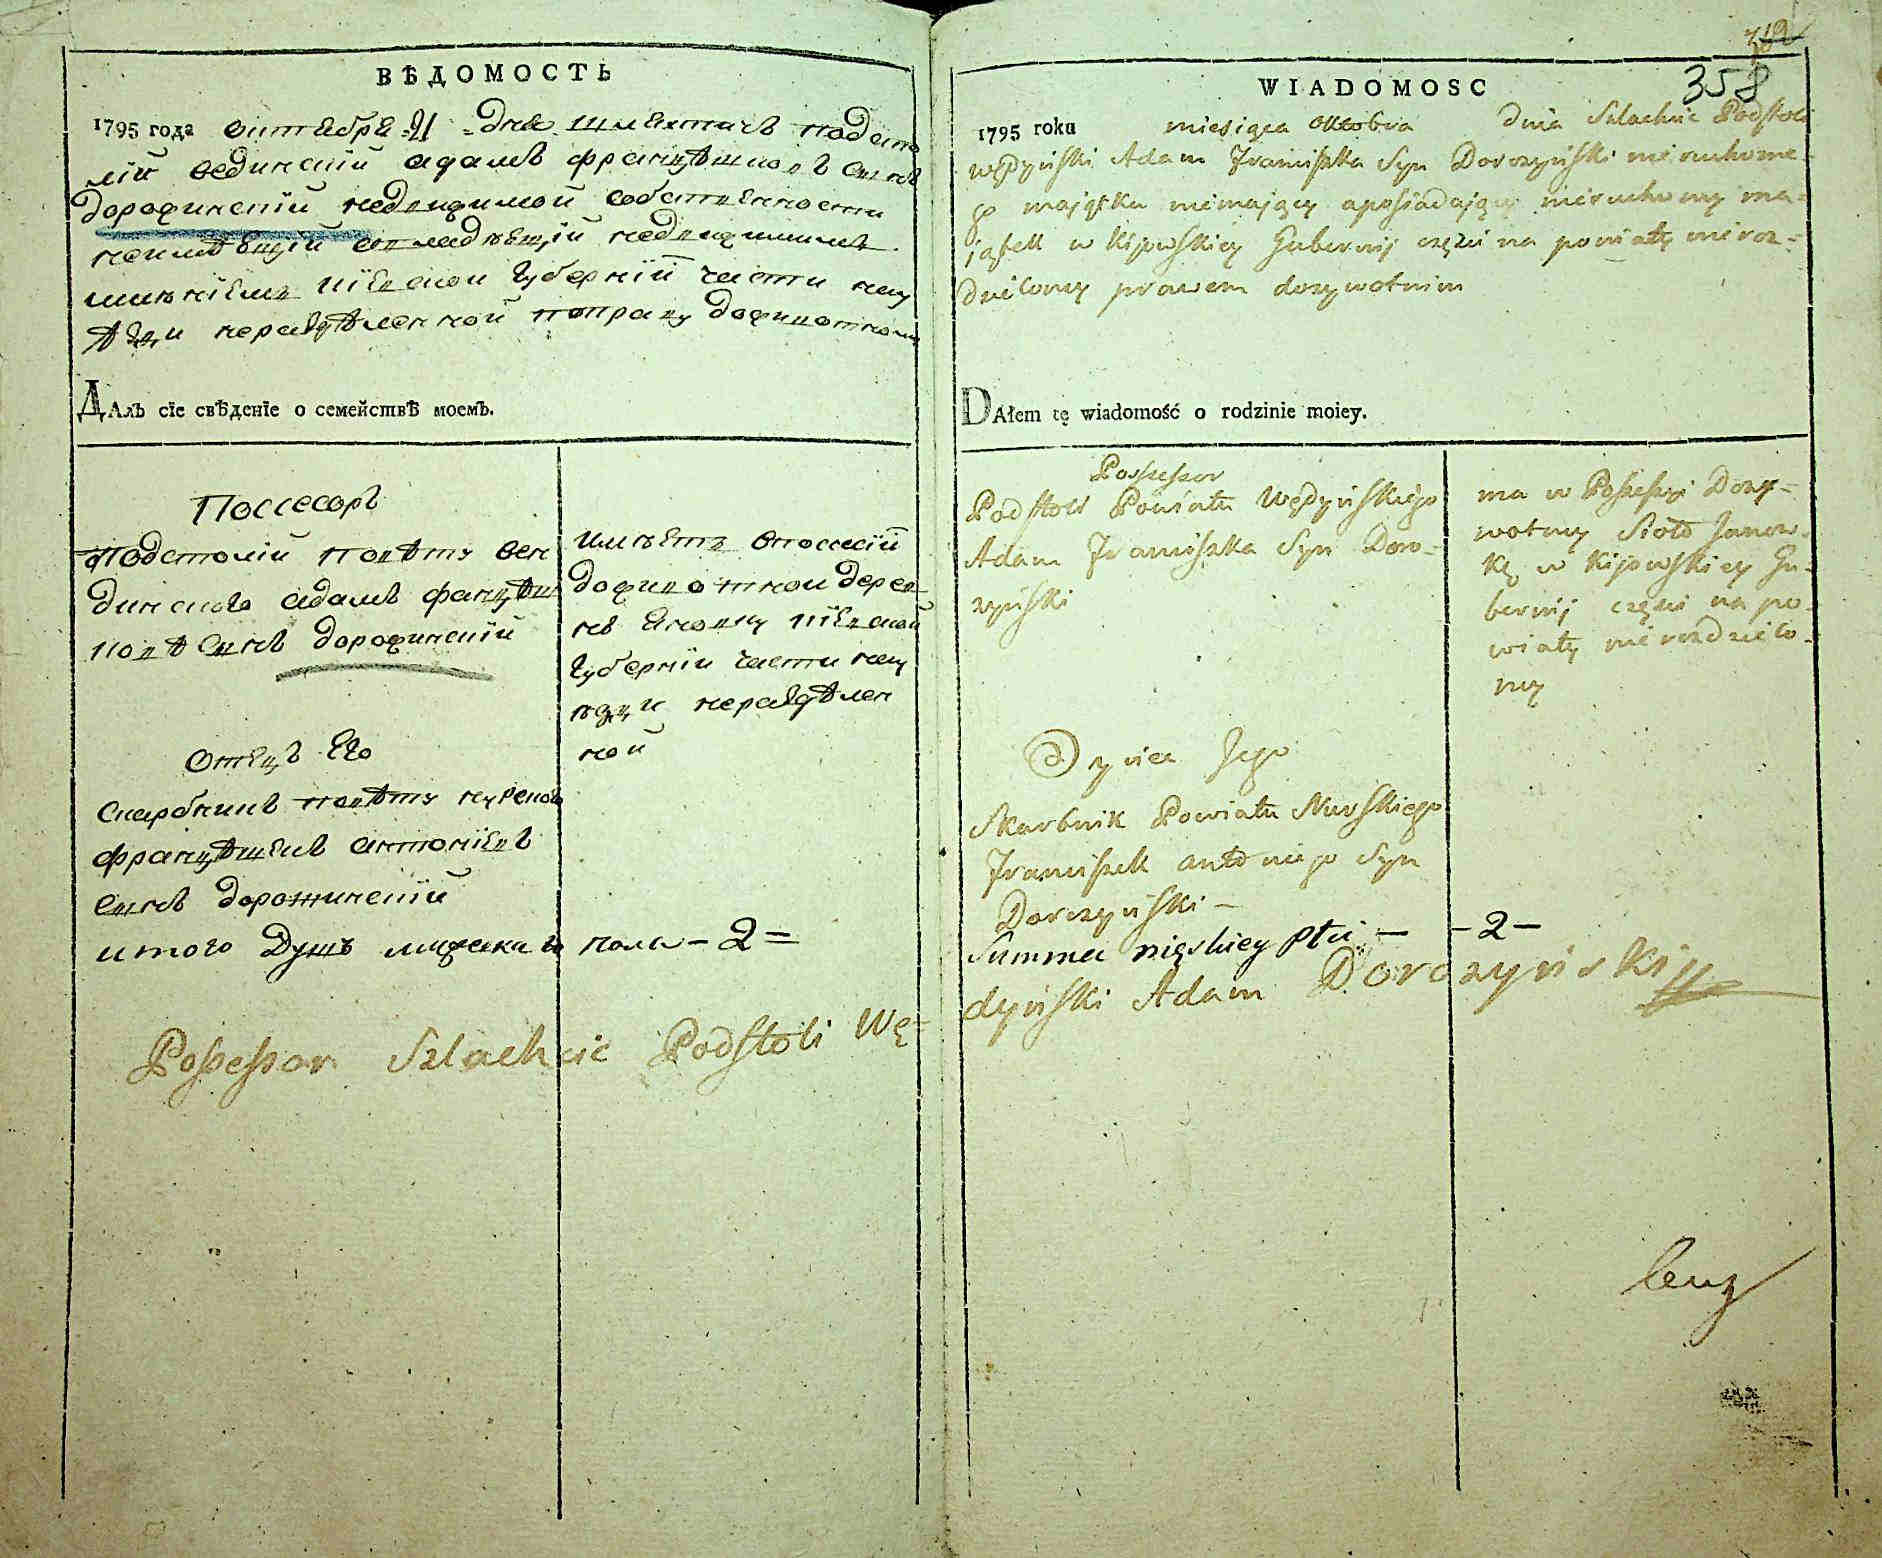 ВѢДОМОСТЬ
1795 года октебра 21 дня шляхтичъ подсто
лій вединскій адамъ францѣшковъ синъ
дорожинскій недвижимой собственности
неимѣющій а владѣющій недвижимимъ
имѣніемъ кіевской губерніи части на у
ѣзди неразѣленной поправу доживотному
ДАлъ сіе свѣденіе о семействѣ моемъ.
Поссесоръ
подстолій повѣту вен
динского адамъ фанцѣш
ковъ синъ дорожинскій
имѣетъ впоссесіи
доживотной дерев
нѣ яновку кіевской
губерніи части на у
ѣзди неразѣлен
ной
отецъ его
скарбникъ повѣту нурского
францѣшекъ антоніевъ
синъ дорожинскій
итого душъ мужеска го пола - 2 =
Possessor Szlachcic Podstoli Wę=
358
WIADOMOSC
1795 roku miesiąca Oktobra dnia Szlachcic Podstoli
wędyński Adam Franciszka Syn Dorozyński nieruchome=
go majątku niemający aposiadający nieruchomy ma=
jątek w Kijowskiey Gubernij części na powiaty nieroz=
dzielony prawem dozywotnim
DAłem tę wiadomość o rodzinie moiey.
Possessor
Podstoli Powiatu Wędyńskiego
Adam Franciszka Syn Doro=
zyński
ma w Possessyi Dozy=
wotney Sioło Janow=
kę w Kijowskiey Gu=
bernij części na po=
wiaty nierozdzielo=
ney
Oyciec Jego
Skarbnik Powiatu Nurskiego
Franciszek antoniego Syn
Dorozyński -
Summa męskiey płci - - 2 -
dyński Adam Dorozyński